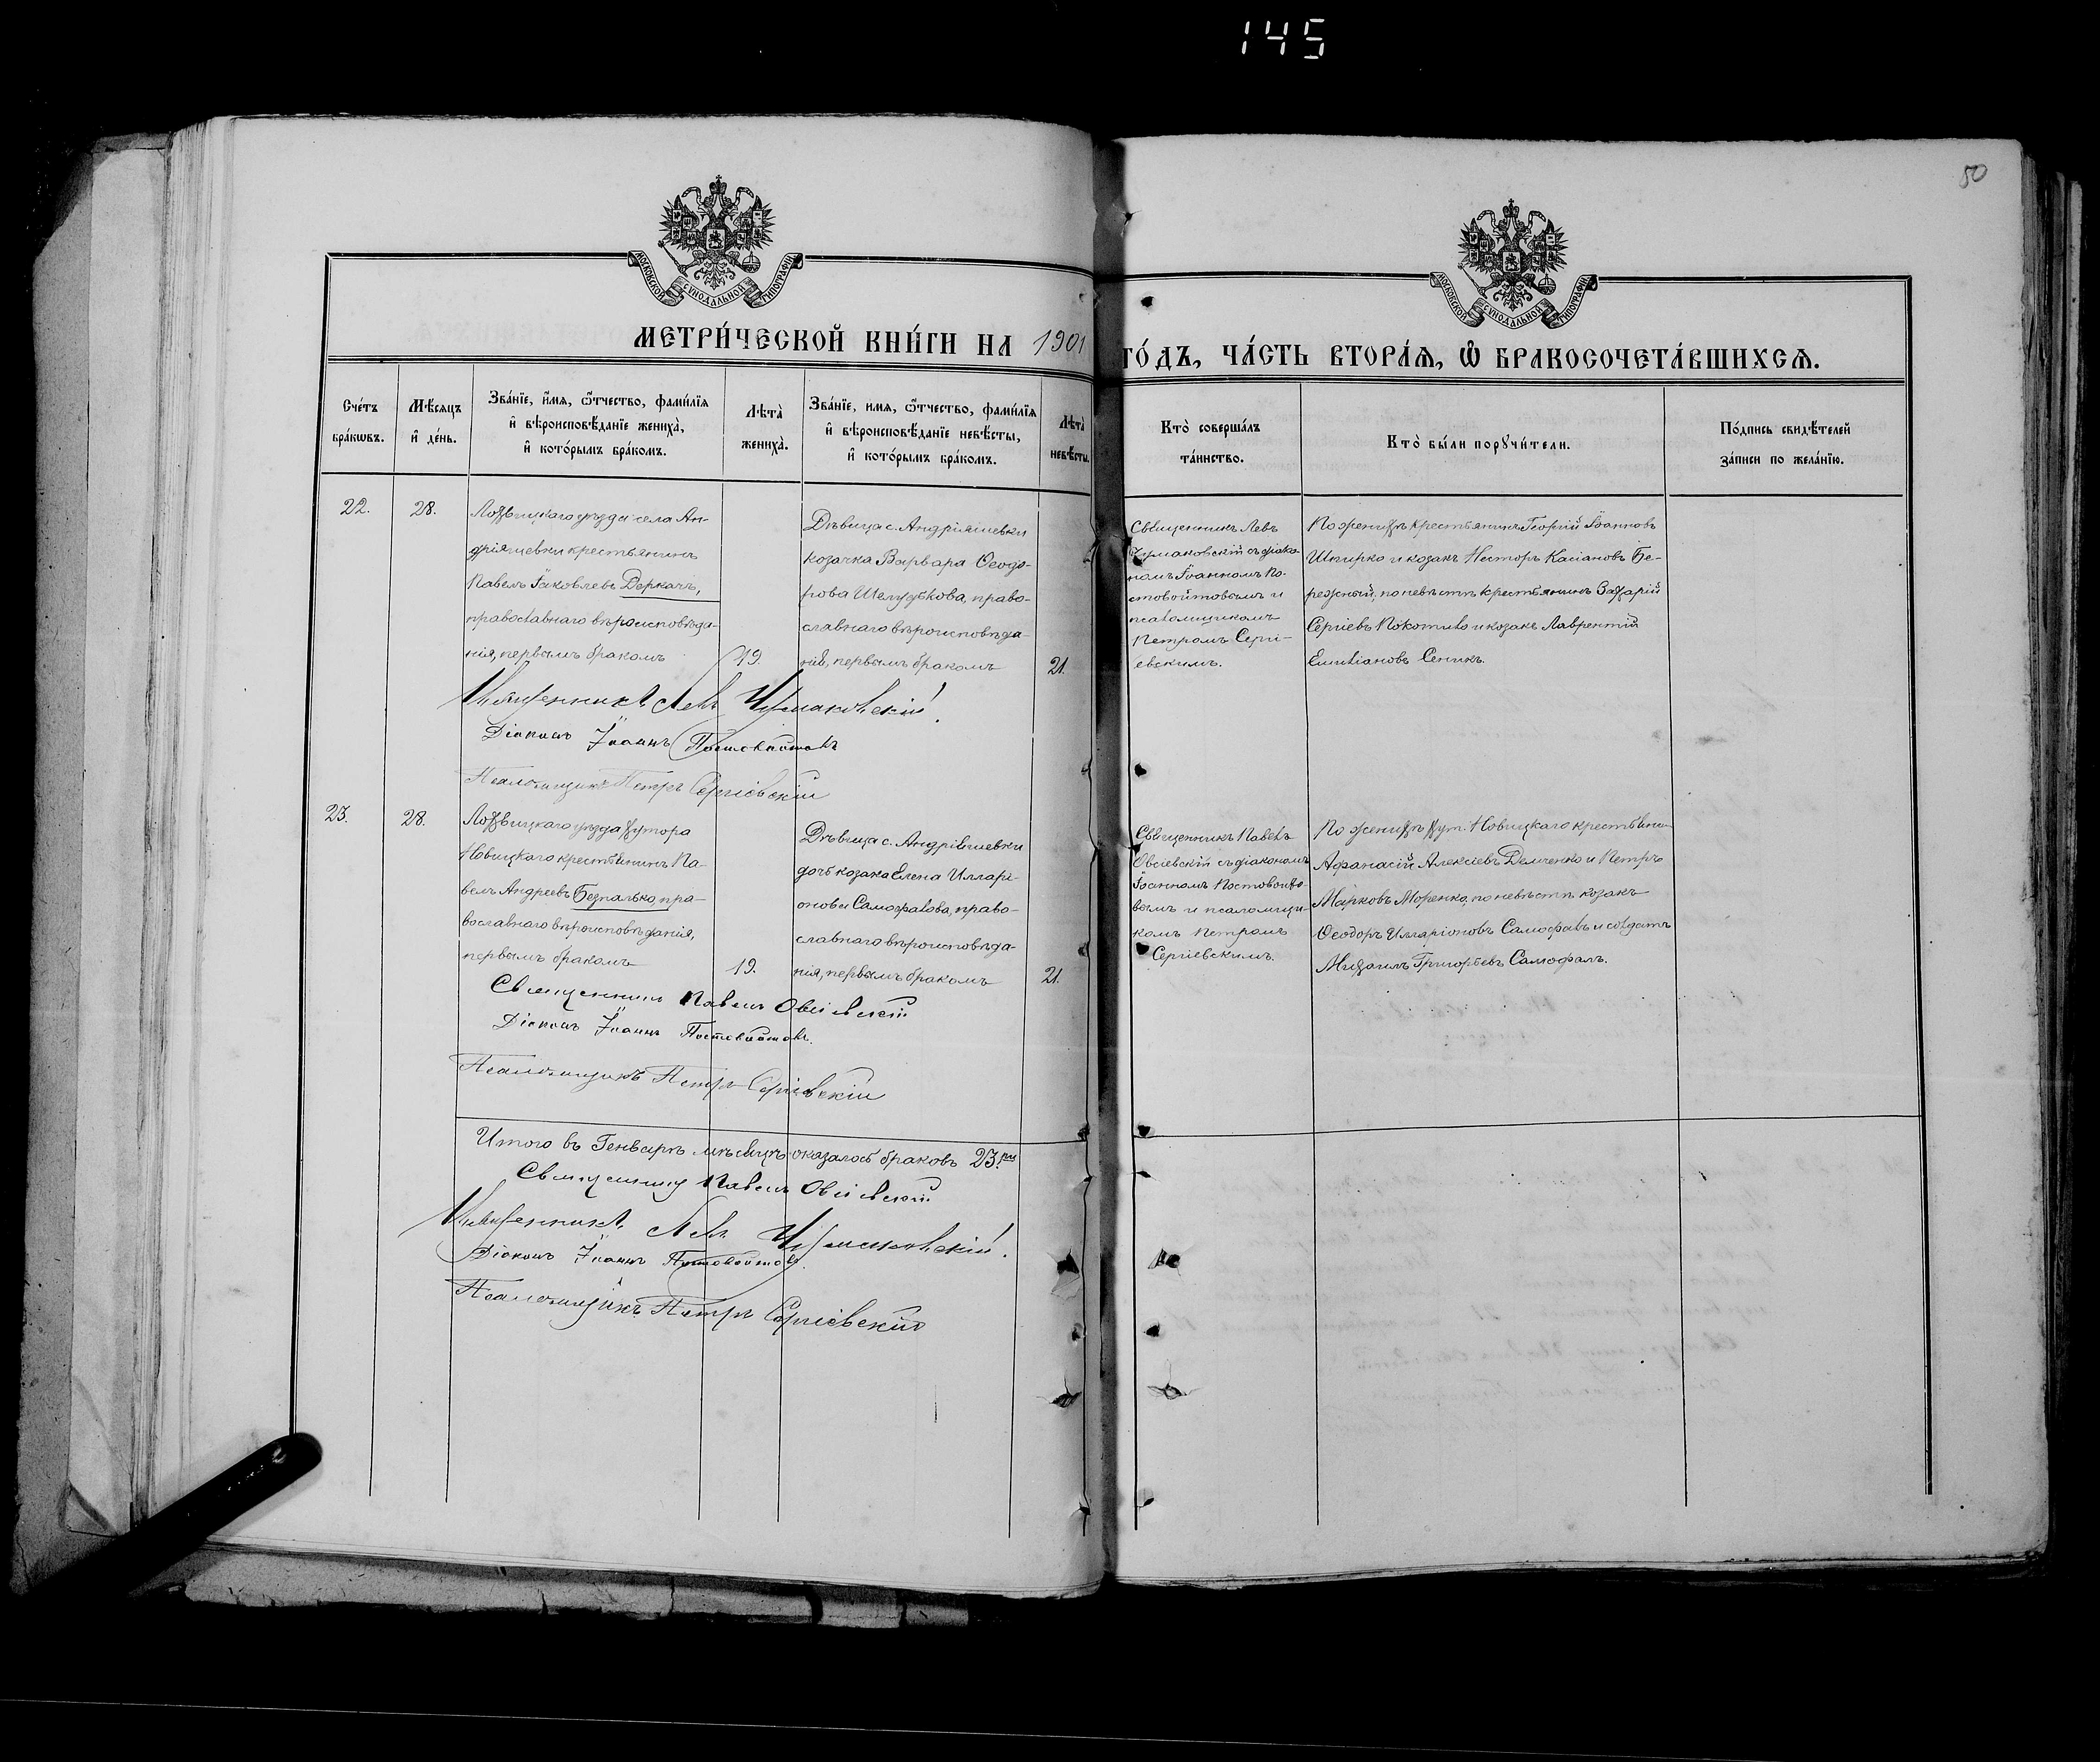 145
50
МОСКОВСКОЙ СѴНОДАЛЬНОЙ ТИПОГРАФІИ
МОСКОВСКОЙ СѴНОДАЛЬНОЙ ТИПОГРАФІИ
МЕТРИ́ЧЕСКОЙ КНИ́ГИ НА 1901
ГО́ДЪ, ЧА́СТЬ ВТОРА́Ѧ, Ѽ БРАКОСОЧЕТА́ВШИХСѦ.
Сче́тъ
бра́кѡвъ.
Мѣ́сѧцъ
и҆ де́нь.
Зва́нїе, и҆́мѧ, ѻ҆́тчество, фами́лїѧ
и҆ вѣроисповѣ́данїе жениха̀,
и҆ кото́рымъ бра́комъ.
Лѣта̀
жениха̀.
Зва́нїе, и҆мѧ, ѻ҆́тчество, фами́лїѧ
и҆ вѣроисповѣ́данїе невѣ́сты,
и҆ кото́рымъ бра́комъ.
Лѣта̀
невѣ́сты.
Кто̀ соверша́лъ
та́инство.
Кто̀ бы́ли порꙋчи́тели.
По́дпись свидѣ́телей
за́писи по жела́нїю.
22.
28.
Лохвицкаго уѣзда села Ан-
дріяшевки крестьянинъ
Павелъ Іаковлевъ Деркачъ,
православнаго вѣроисповѣда-
нія, первымъ бракомъ
19.
Дѣвица с. Андріяшевки
козачка Варвара Ѳеодо-
рова Шелудькова, право-
славнаго вѣроисповѣда-
нія, первымъ бракомъ
21.
Священникъ Левъ
Чумаковскій съ діако-
номъ Іоанномъ По-
стовойтовымъ и
псаломщикомъ
Петромъ Сергі-
евскимъ.
По женихѣ крестьянинъ Георгій Іоанновъ
Шпирко и козакъ Несторъ Касіановъ Бе-
режный, по невѣстѣ крестьянинъ Захарій
Сергіевъ Покотило и козакъ Лаврентій
Емиліановъ Сеникъ.
Священникъ Левъ Чумаковскій.
Діаконъ Іоаннъ Постовойтовъ
Псаломщикъ Петръ Сергіевскій
23.
28.
Лохвицкаго уѣзда хутора
Новицкаго крестьянинъ Па-
велъ Андреевъ Безпалько, пра-
вославнаго вѣроисповѣданія,
первымъ бракомъ
19.
Дѣвица с. Андріяшевки
дочь козака Елена Илларі-
онова Самофалова, право-
славнаго вѣроисповѣда-
нія, первымъ бракомъ
21.
Священникъ Павелъ
Овсіевскій съ діакономъ
Іоанномъ Постовойто-
вымъ и псаломщи-
комъ Петромъ
Сергіевскимъ.
По женихѣ хут. Новицкаго крестьяни-
Афанасій Алексіевъ Демченко и Петръ
Марковъ Моренко, по невѣстѣ козакъ
Ѳеодоръ Илларіоновъ Самофалъ и солдатъ
Михаилъ Григорьевъ Самофалъ.
Священникъ Павелъ Овсіевскій
Діаконъ Іоаннъ Постовойтовъ.
Псаломщикъ Петръ Сергіевскій
Итого въ Генварѣ мѣсяцѣ оказалось браковъ 23.ри
Священникъ Павелъ Овсіевскій
Священникъ Левъ Чумаковскій.
Діаконъ Іоаннъ Постовойтовъ.
Псаломщикъ Петръ Сергіевскій